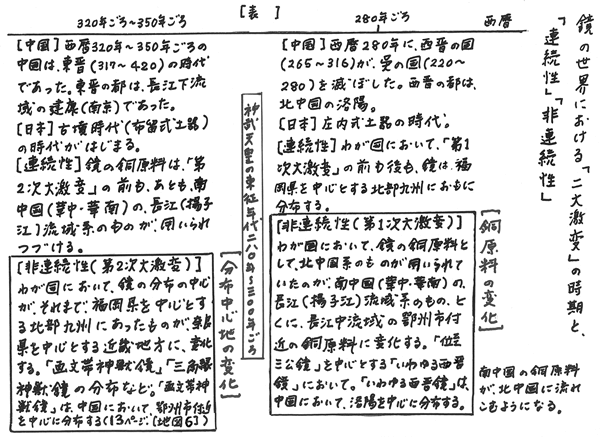 鏡の世界における「二大激変」の時期と、
「連続性」「非連続性」
[表]
西暦
280年ごろ
320年ごろ~350年ごろ
[中国]西暦280年に、西晋の国
(265~316)が、呉の国(220~
280)を滅ぼした。西晋の都は、
北中国の洛陽。
[日本]庄内式土器の時代。
[連続性]わが国において、「第1
次大激変」の前も後も、鏡は、福
岡県を中心とする北部九州におもに
分布する。
[非連続性(第1次大激変)]
わが国において、鏡の銅原料と
して、北中国系のものが用いられて
いたのが、南中国(華中・華南)の、
長江(揚子江)流域系のもの、と
くに、長江中流域の鄂州市付
近の銅原料に変化する。「位至
三公鏡」を中心とする「いわゆる西晋
鏡」において。「いわゆる西晋鏡」は、
中国において、洛陽を中心に分布する。
[銅原料の変化]
南中国の銅原料
が、北中国に流れ
こもようになる。
神武天皇の東征年代二八〇年~三〇〇年ごろ
[中国]西暦320年~350年ごろの
中国は、東晋(317~420)の時代
であった。東晋の都は、長江下流
域の建康(南京)であった。
[日本]古墳時代(布留式土器)
の時代がはじまる。
[連続性]鏡の銅原料は、「第
2次大激変」の前も、あとも、南
中国(華中・華南)の、長江(揚子
江)流域系のものが、用いられ
つづける。
[非連続性(第2次大激変)]
わが国において、鏡の分布の中心
が、それまで、福岡県を中心とす
る北部九州にあったものが、奈良
県を中心とする近畿地方に、変化
する。「画文帯神獣鏡」「三角縁
神獣鏡の分布など。「画文帯神
獣鏡」は、中国において、鄂州市付近
を中心に分布する(13ページ、[地図6])
[分布中心地の変化]